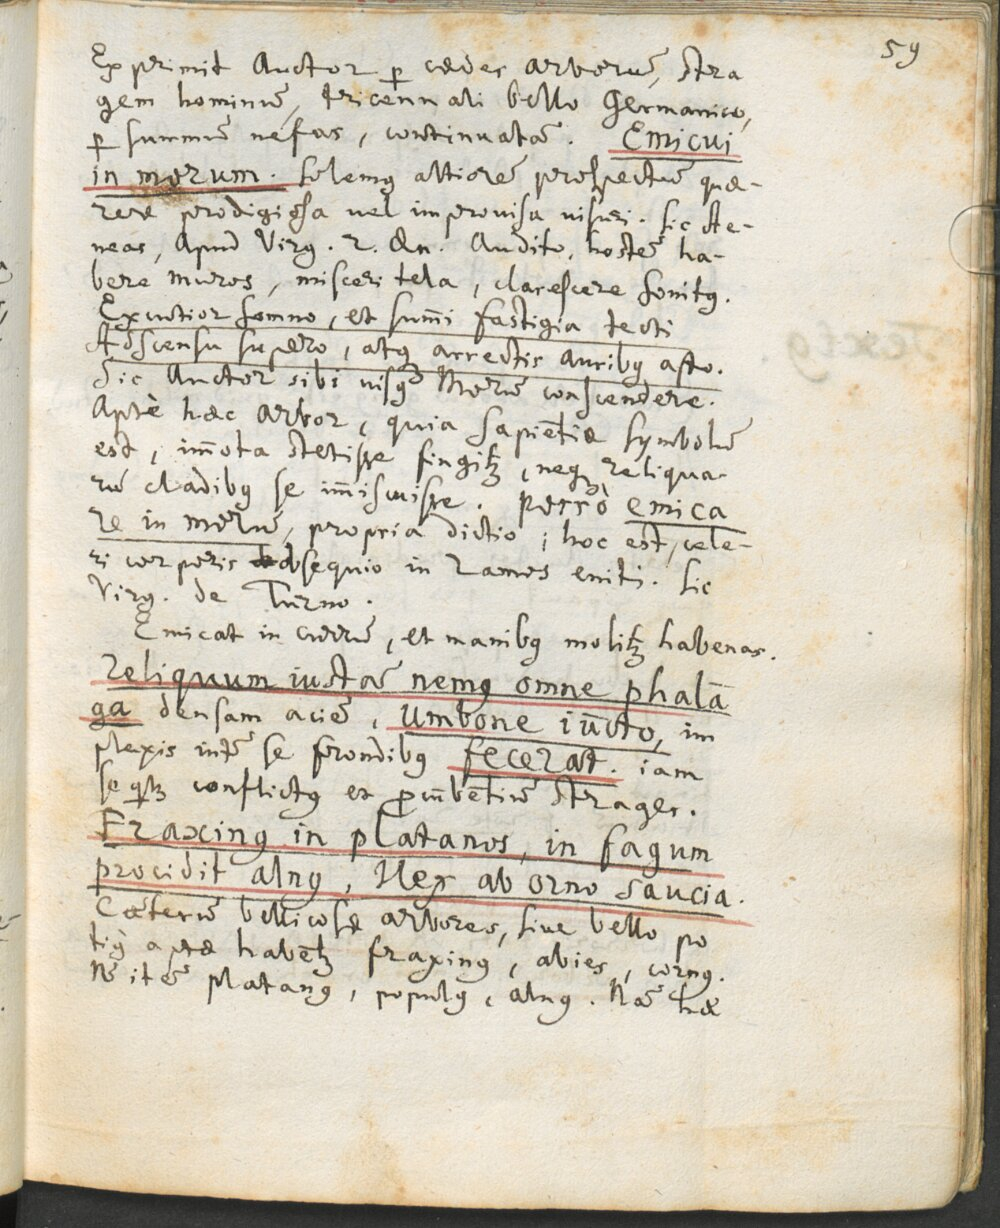 59
Exprimit Auctor p̱ cædes arborū, stra
gem hominū, tricennali bello Germanico,
p̱ summū nefas, continuatā. Emicui
in morum. solemꝰ altiorē prospectū quæ-
rere prodigiosa vel improvisa visuri. sic Ae-
neas, apud Virg. 2. Æn. Audito, hostē ha-
bere muros, misceri tela, clarescere sonitꝰ.
Excutior somno, et sum̄i fastigia tecti
Adscensu supero, atq; arrectis auribꝰ asto.
Sic Auctor sibi visꝰ Morū conscendere.
Aptè hæc arbor, quia sapiētiæ symbolū
est, im̄ota stetisse fingit᷑, neq; reliqua-
rū cladibꝰ se im̄iscuisse. Porrò emica
re in morū, propria dictio, hoc est, cele-
ri corporis obsequio in ramos eniti. Sic
Virg. de Turno.
Emicat in currū, et manibꝰ molit᷑ habenas.
reliquum iustā nemꝰ omne phalā
ga densam aciē, umbone iūcto, im
plexis int̄ se frondibꝰ fecerat. iam
seqt᷑ conflictꝰ et ꝓcūbētiū strages.
Fraxinꝰ in platanos, in fagum
procidit alnꝰ, Ilex ab orno saucia.
Cæterū bellicosæ arbores, sive bello po
tiꝰ aptæ habēt᷑ fraxinꝰ, abies, cornꝰ.
Nō itē platanꝰ, populꝰ, alnꝰ. Nā hæ